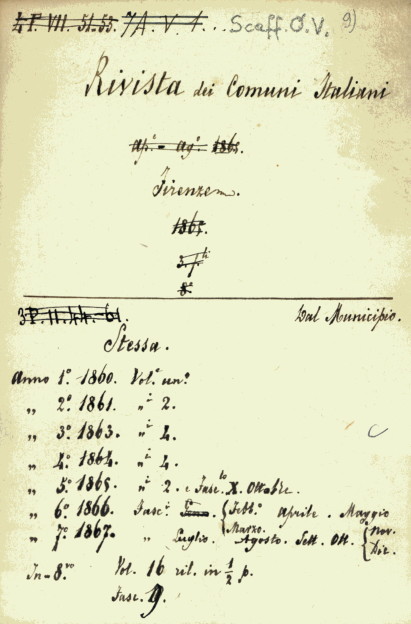 4 P. VII. 51-53. 7A. V. 1... Scaff. O. V. 9)
Rivista dei Comuni Italiani
ap.e - ag.o 1865.
Firenze.
1865.
3. f.ti
8.o
3 P. II. 44. 61. Dal Municipio.
Stessa.
Anno 1.o 1860. Vol.e un.o
„ 2.o 1861. „ i 2.
„ 3.o 1863. „ i 4.
„ 4.o 1864. „ i 4.
„ 5.o 1865. „ i 2. e Fasc.lo X. Ottobre.
„ 6.o 1866. Fasc.i Febb.o Marzo. Aprile. Maggio
„ 7.o 1867. „ Luglio. Agosto. Sett. Ott. Nov. Dic.
In-8.vo Vol. 16 ril. in 1/2 p.
Fasc. 9.